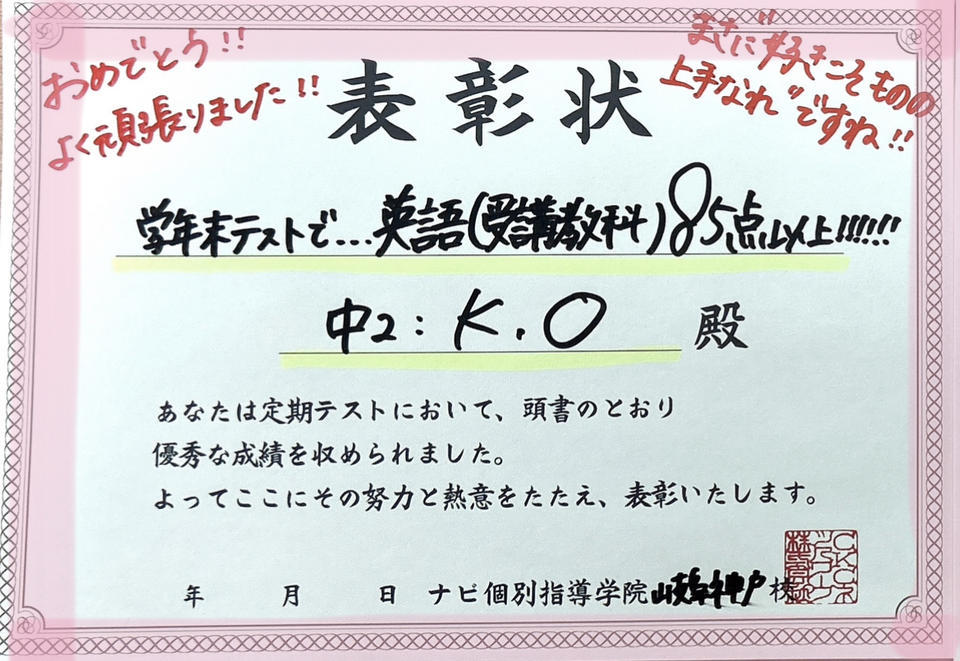 おめでとう!!
よく頑張りました!!
まさに"好きこそものの
上手なれ"ですね!!
表彰状
学年末テストで...英語(受講教科)85点以上!!!!!!
中2:K.O 殿
あなたは定期テストにおいて、頭書のとおり
優秀な成績を収められました。
よってここにその努力と熱意をたたえ、表彰いたします。
年 月 日 ナビ個別指導学院岐阜神戸校